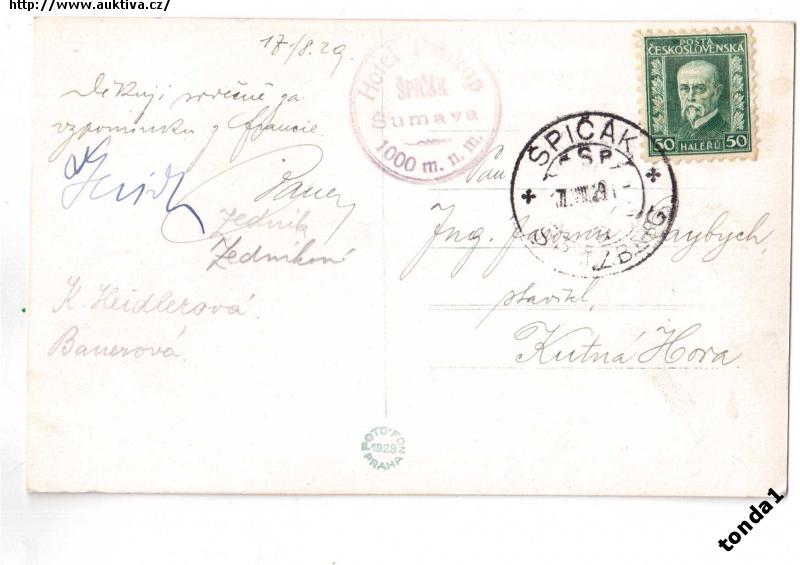 http://www.auktiva.cz/
17/8.29
Děkuji srdečně za
vzpomínku z Francie
Jedník
Jedníková
K. Heidlerová.
Bauerová.
Hotel Prokop
ŠPIČÁK
Šumava
1000 m. n. m.
POŠTA
ČESKOSLOVENSKÁ
50 HALÉŘŮ 50
ŠPIČÁK
Pan
Ing.
stavitel,
Kutná Hora
FOTO-FON
1929
PRAHA
tonda1